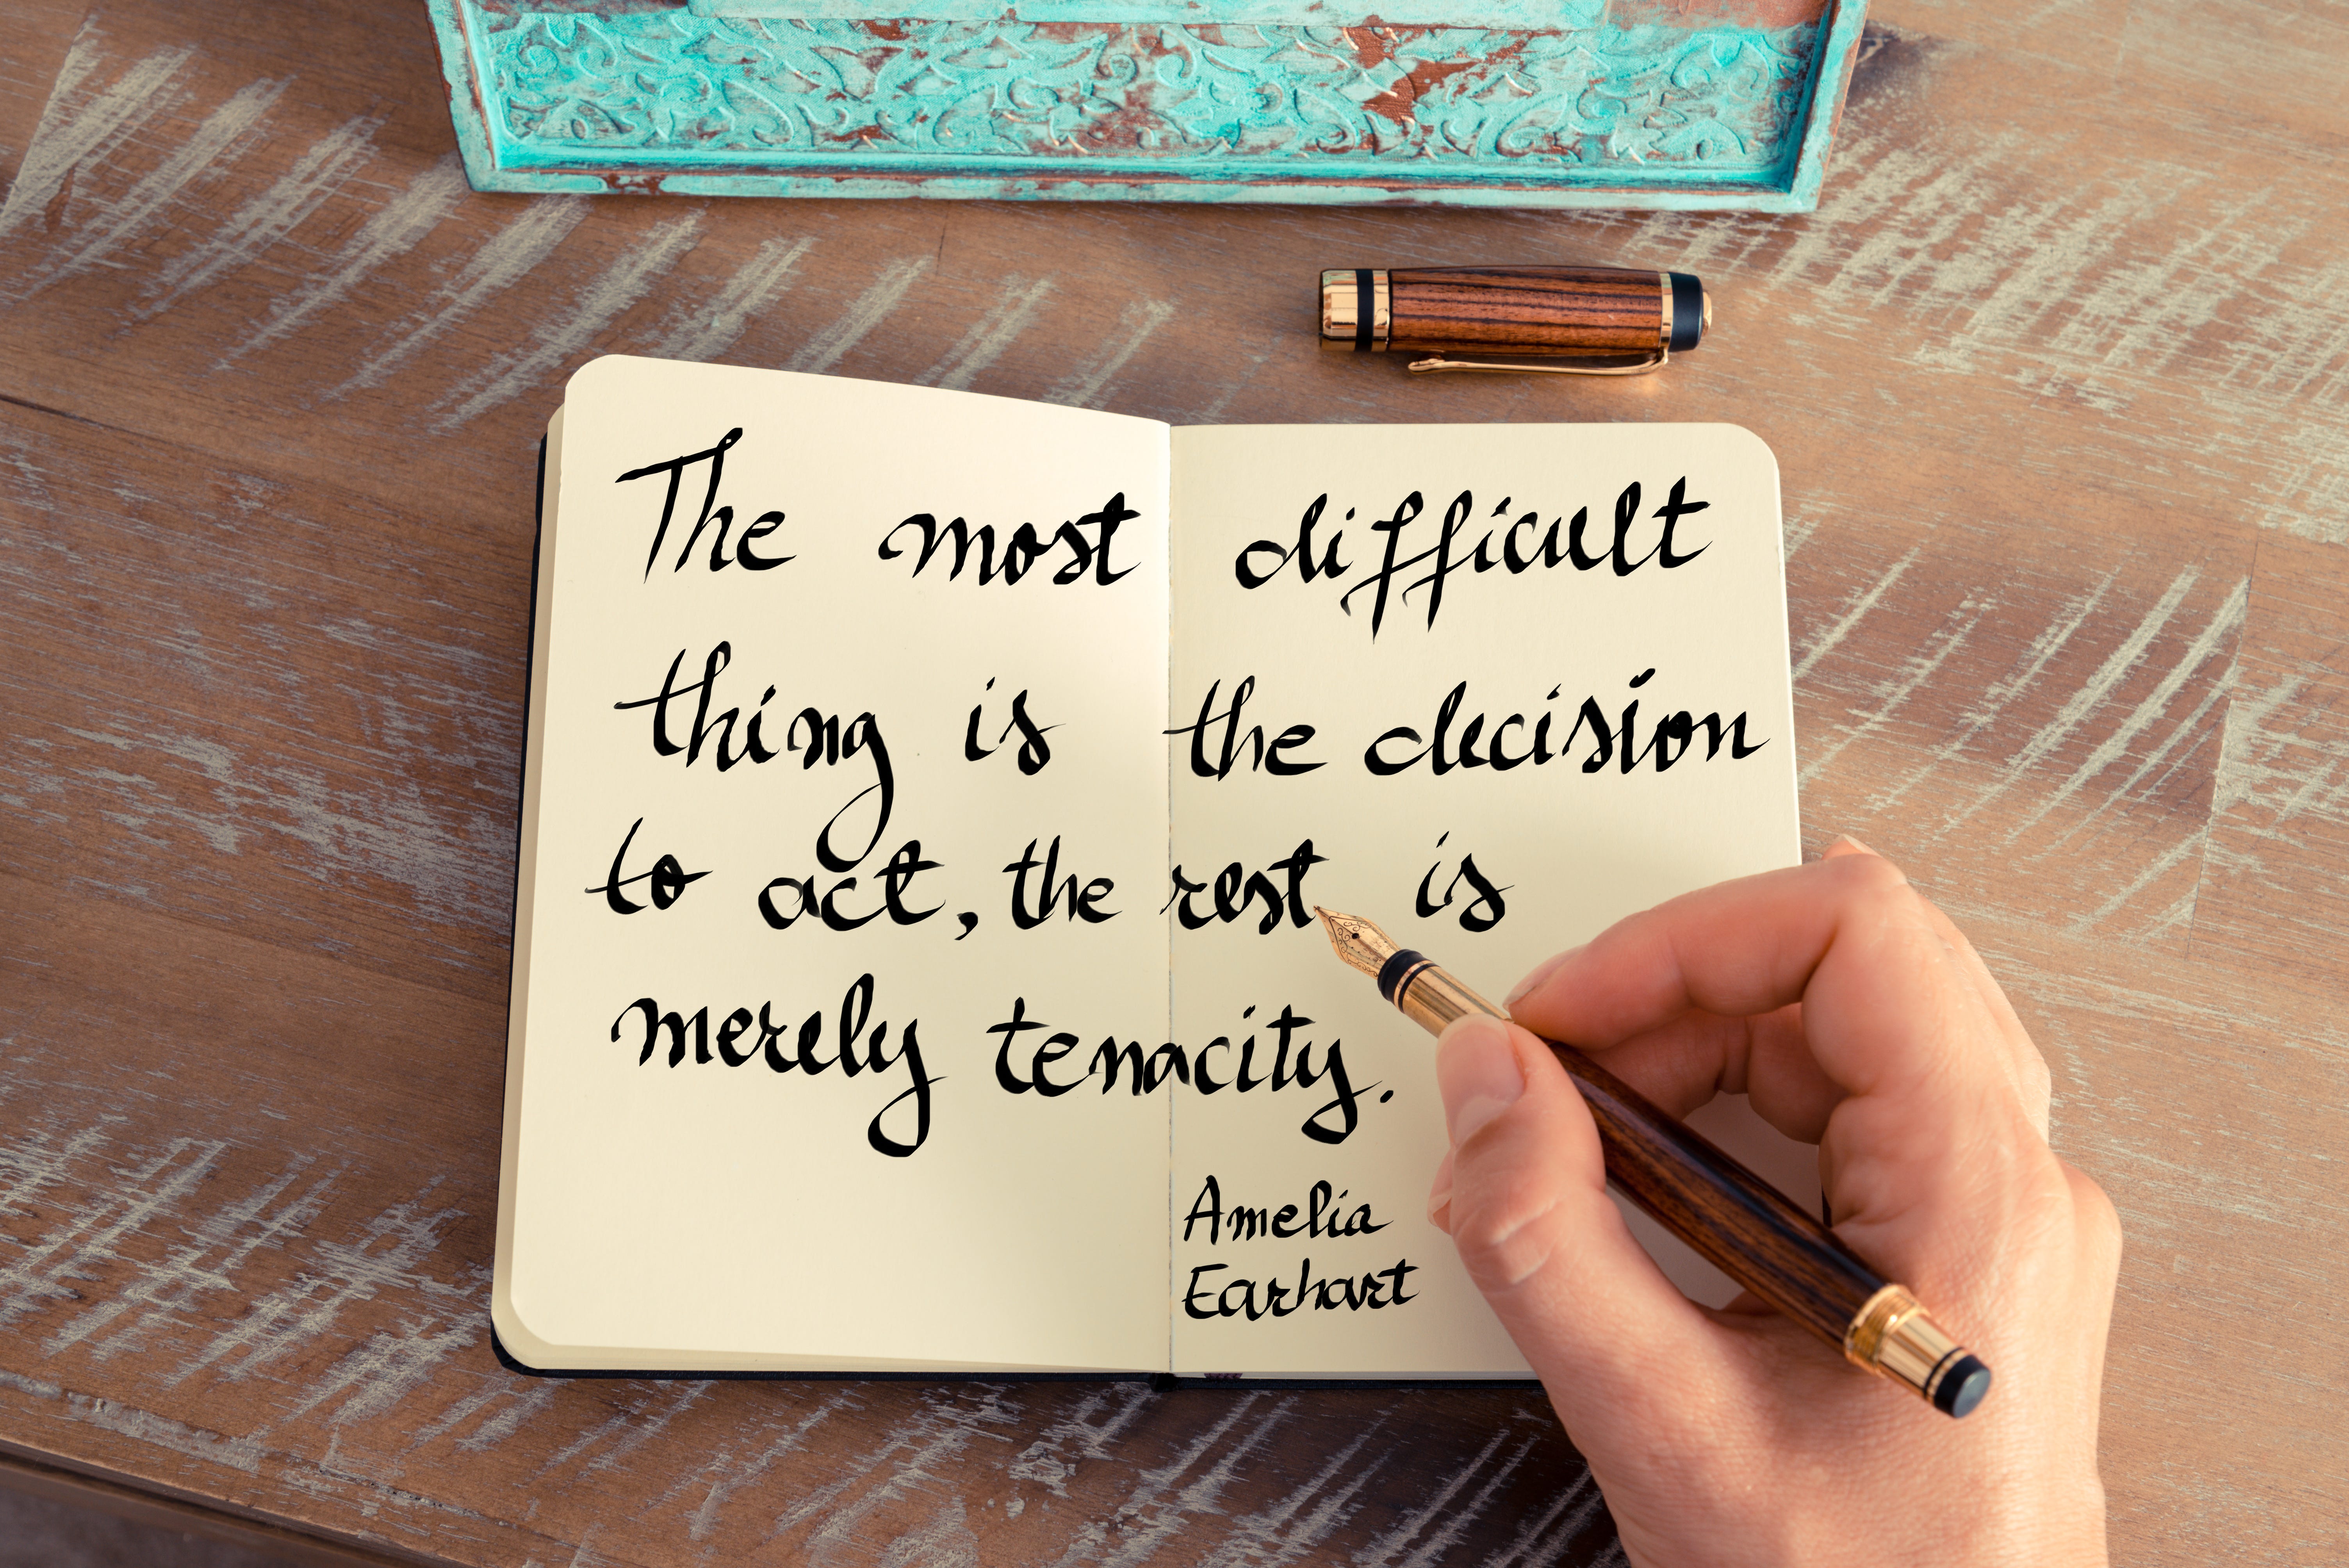 The most difficult
thing is the decision
to act, the rest is
merely tenacity.
Amelia
Earhart